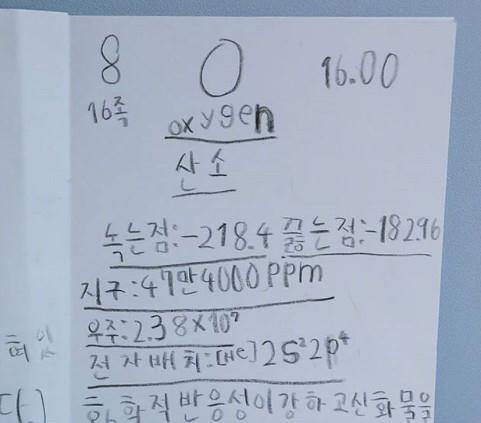 8 O 16.00
16족 oxygen
산소
녹는점:-218.4 끓는점:-182.96
지구:47만4000ppm
우주:2.38×10⁷
전자배치:[He]2S²2P⁴
화학적반응성이강하고산화물을
다.)